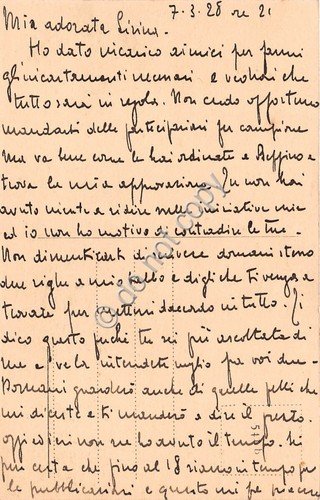 7.3.28 ore 21
Mia adorata Livina.
Ho dato incarico ai miei per farmi
gli incartamenti necessari e vedrai che
tutto sarà in regola. Non credo opportuno
mandarti delle partecipazioni per
ma va bene come le hai ordinate a Peppino e
trova la mia approvazione. Tu non hai
avuto niente a ridire sulle iniziative mie
ed io non ho motivo di contradire le tue.
Non dimenticarti di scrivere domani stesso
due righe a mio e digli che ti venga a
trovare per mettervi d'accordo in tutto. Ti
dico questo perché tu sei più ascoltata di
me e ve la intendete meglio fra voi due.
Domani guarderò anche di quelle pelli che
mi diceste e ti manderò a dire il prezzo.
oggi ed ieri non ne ho avuto il tempo. Sii
pur certa che fino al 18 siamo in tempo per
le pubblicazioni e questo mi fa piacere
do not copy